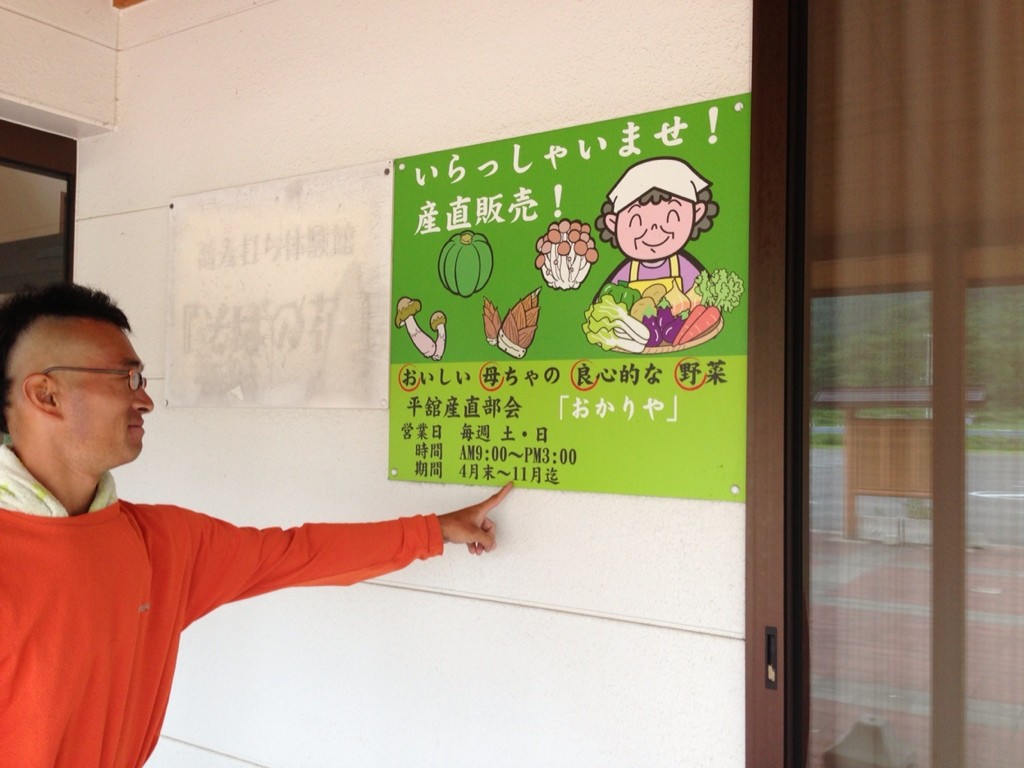 いらっしゃいませ!
産直販売!
おいしい 母ちゃの 良心的な 野菜
平舘産直部会 「おかりや」
営業日 毎週 土・日
時間 AM9:00～PM3:00
期間 4月末～11月迄
蕎麦打ち体験館